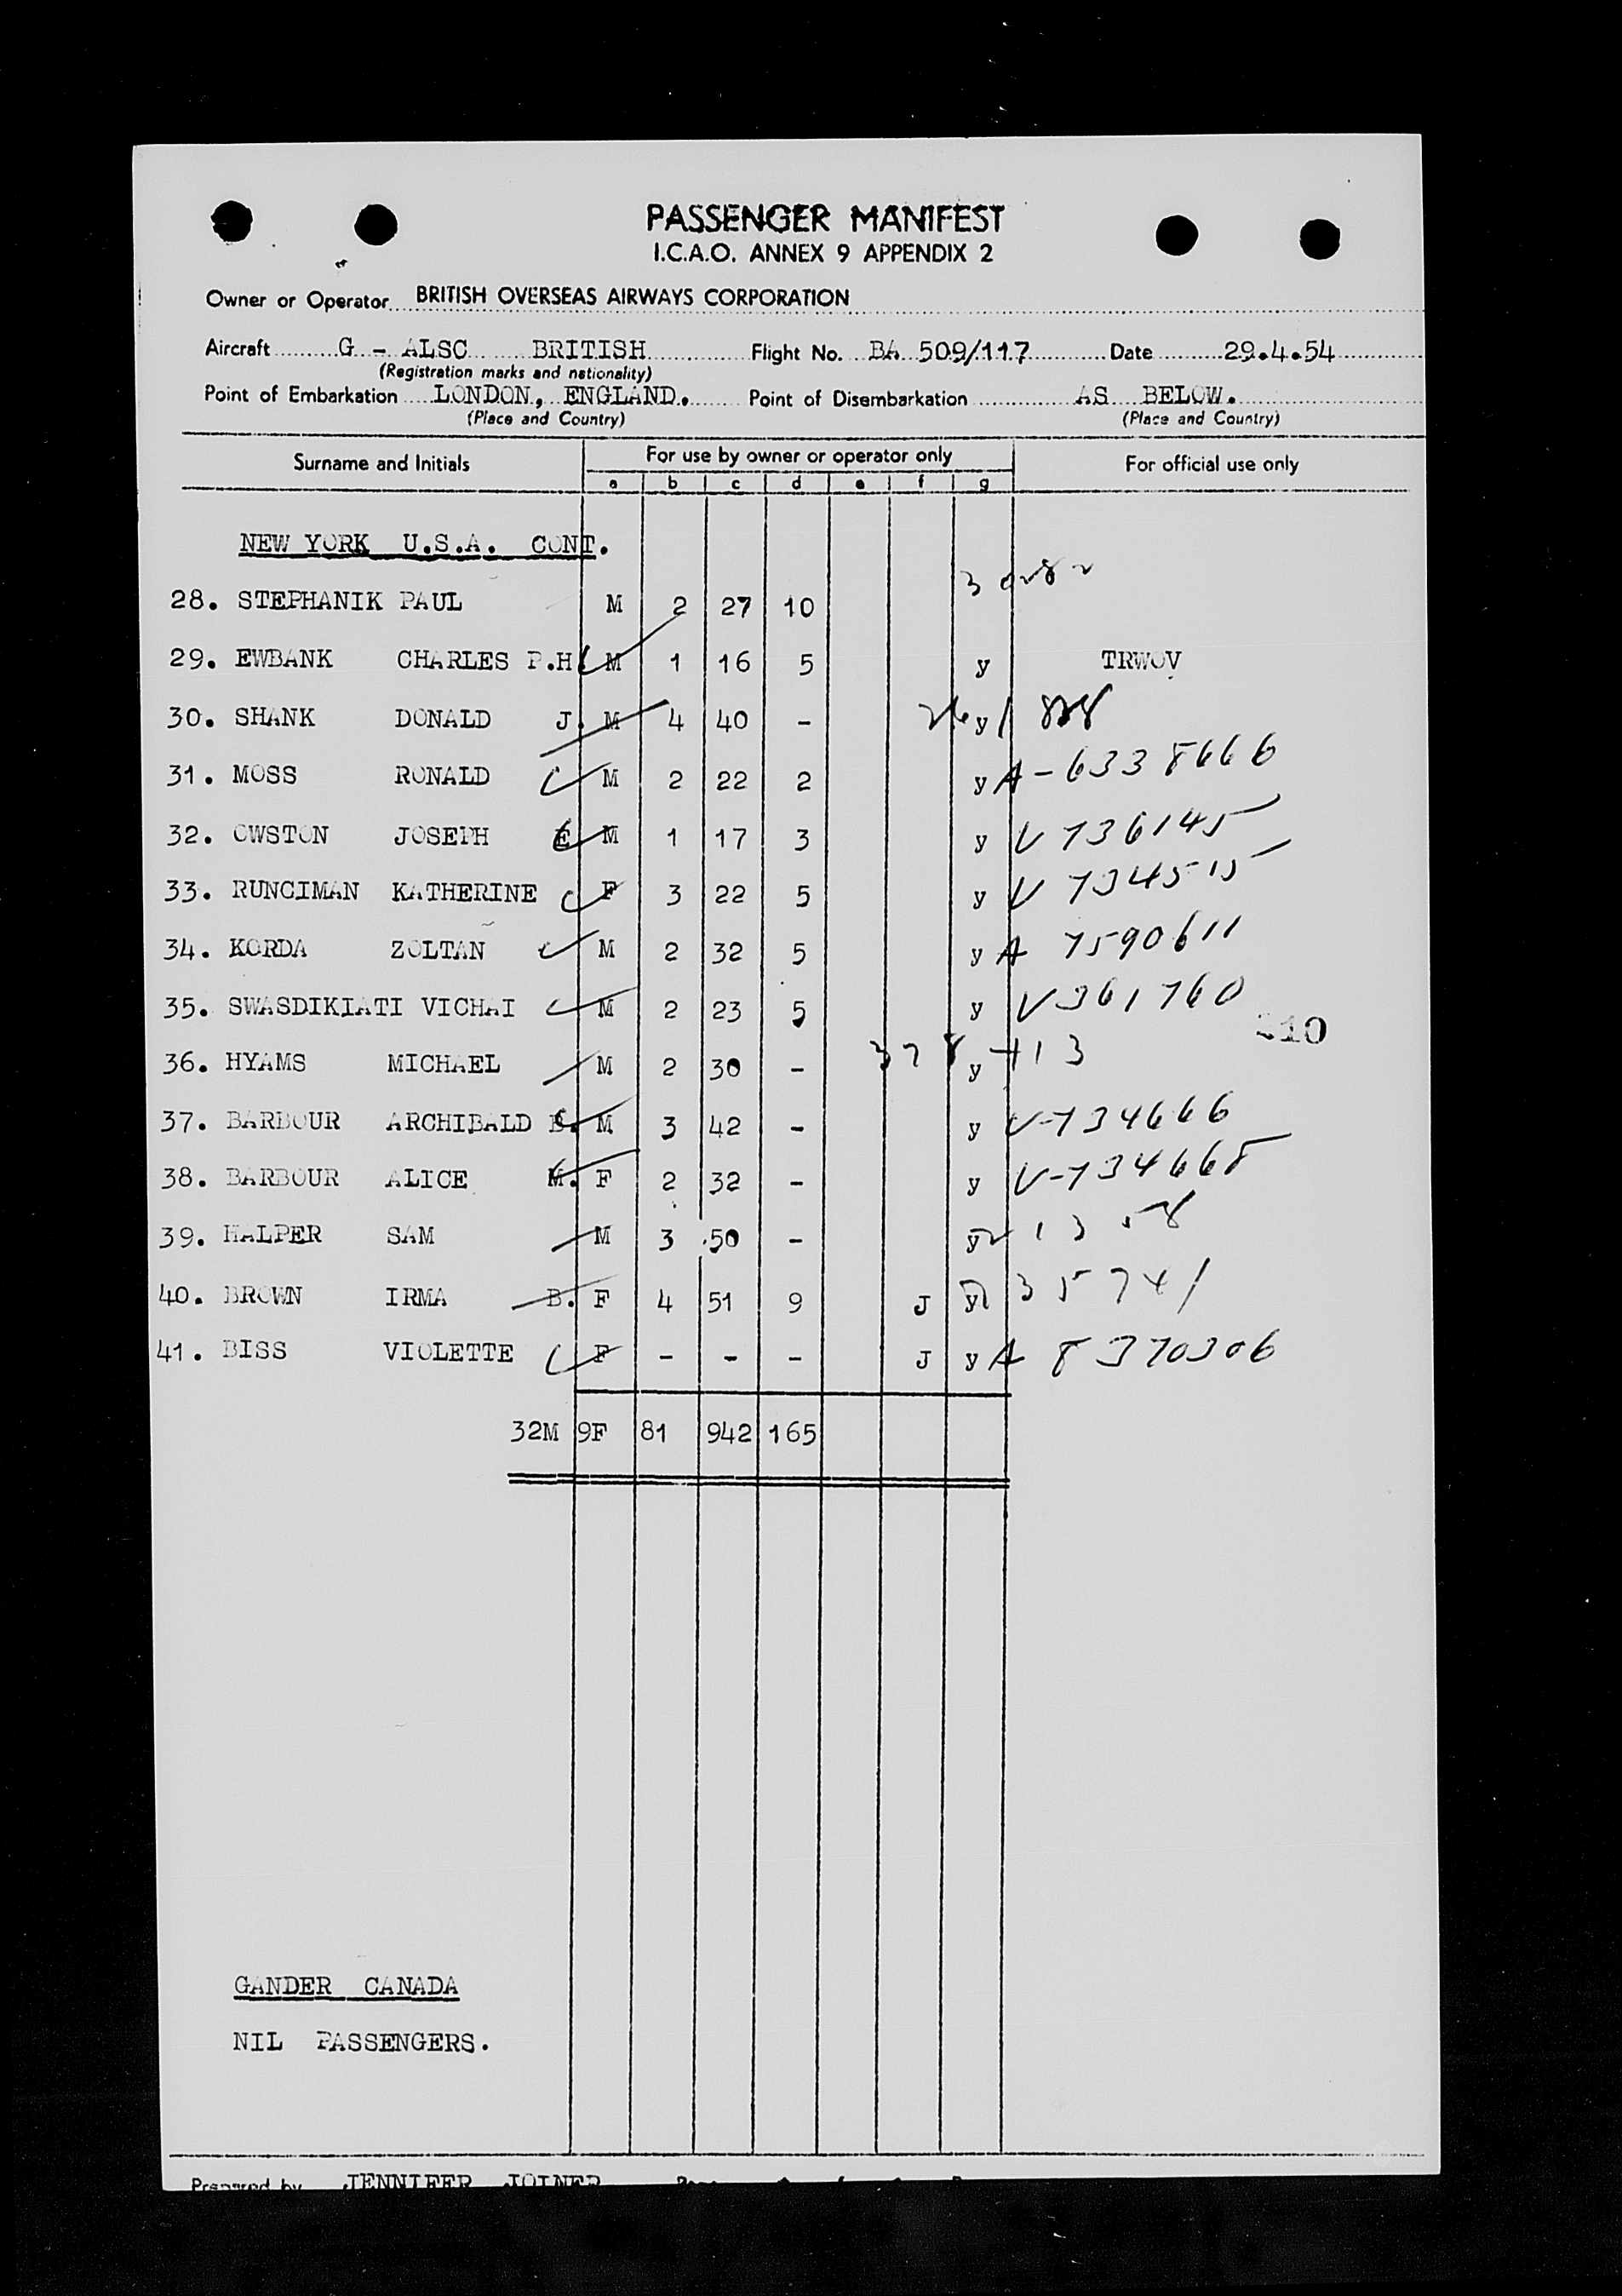 PASSENGER MANIFEST
I.C.A.O. ANNEX 9 APPENDIX 2
Owner or Operator BRITISH OVERSEAS AIRWAYS CORPORATION
Aircraft G - ALSC BRITISH Flight No. BA 509/117 Date 29.4.54
(Registration marks and nationality)
Point of Embarkation LONDON, ENGLAND. Point of Disembarkation AS BELOW.
(Place and Country) (Place and Country)
Surname and Initials For use by owner or operator only For official use only
a b c d e f g
NEW YORK U.S.A. CONT.
28. STEPHANIK PAUL M 2 27 10
29. EWBANK CHARLES P.H. M 1 16 5 y TRWOV
30. SHANK DONALD J. M 4 40 - y
31. MOSS RONALD M 2 22 2 y A-6338666
32. OWSTON JOSEPH E M 1 17 3 y V 736145
33. RUNCIMAN KATHERINE F 3 22 5 y V 734515
34. KORDA ZOLTAN M 2 32 5 y A 7590611
35. SWASDIKIATI VICHAI M 2 23 5 y V361760
210
36. HYAMS MICHAEL M 2 30 - y
37. BARBOUR ARCHIBALD B. M 3 42 - y V-734666
38. BARBOUR ALICE M. F 2 32 - y V-734668
39. HALPER SAM M 3 50 - y
40. BROWN IRMA B. F 4 51 9 J y
41. BISS VIOLETTE F - - - J y A 8370306
32M 9F 81 942 165
GANDER CANADA
NIL PASSENGERS.
Prepared by JENNIFER JOINER